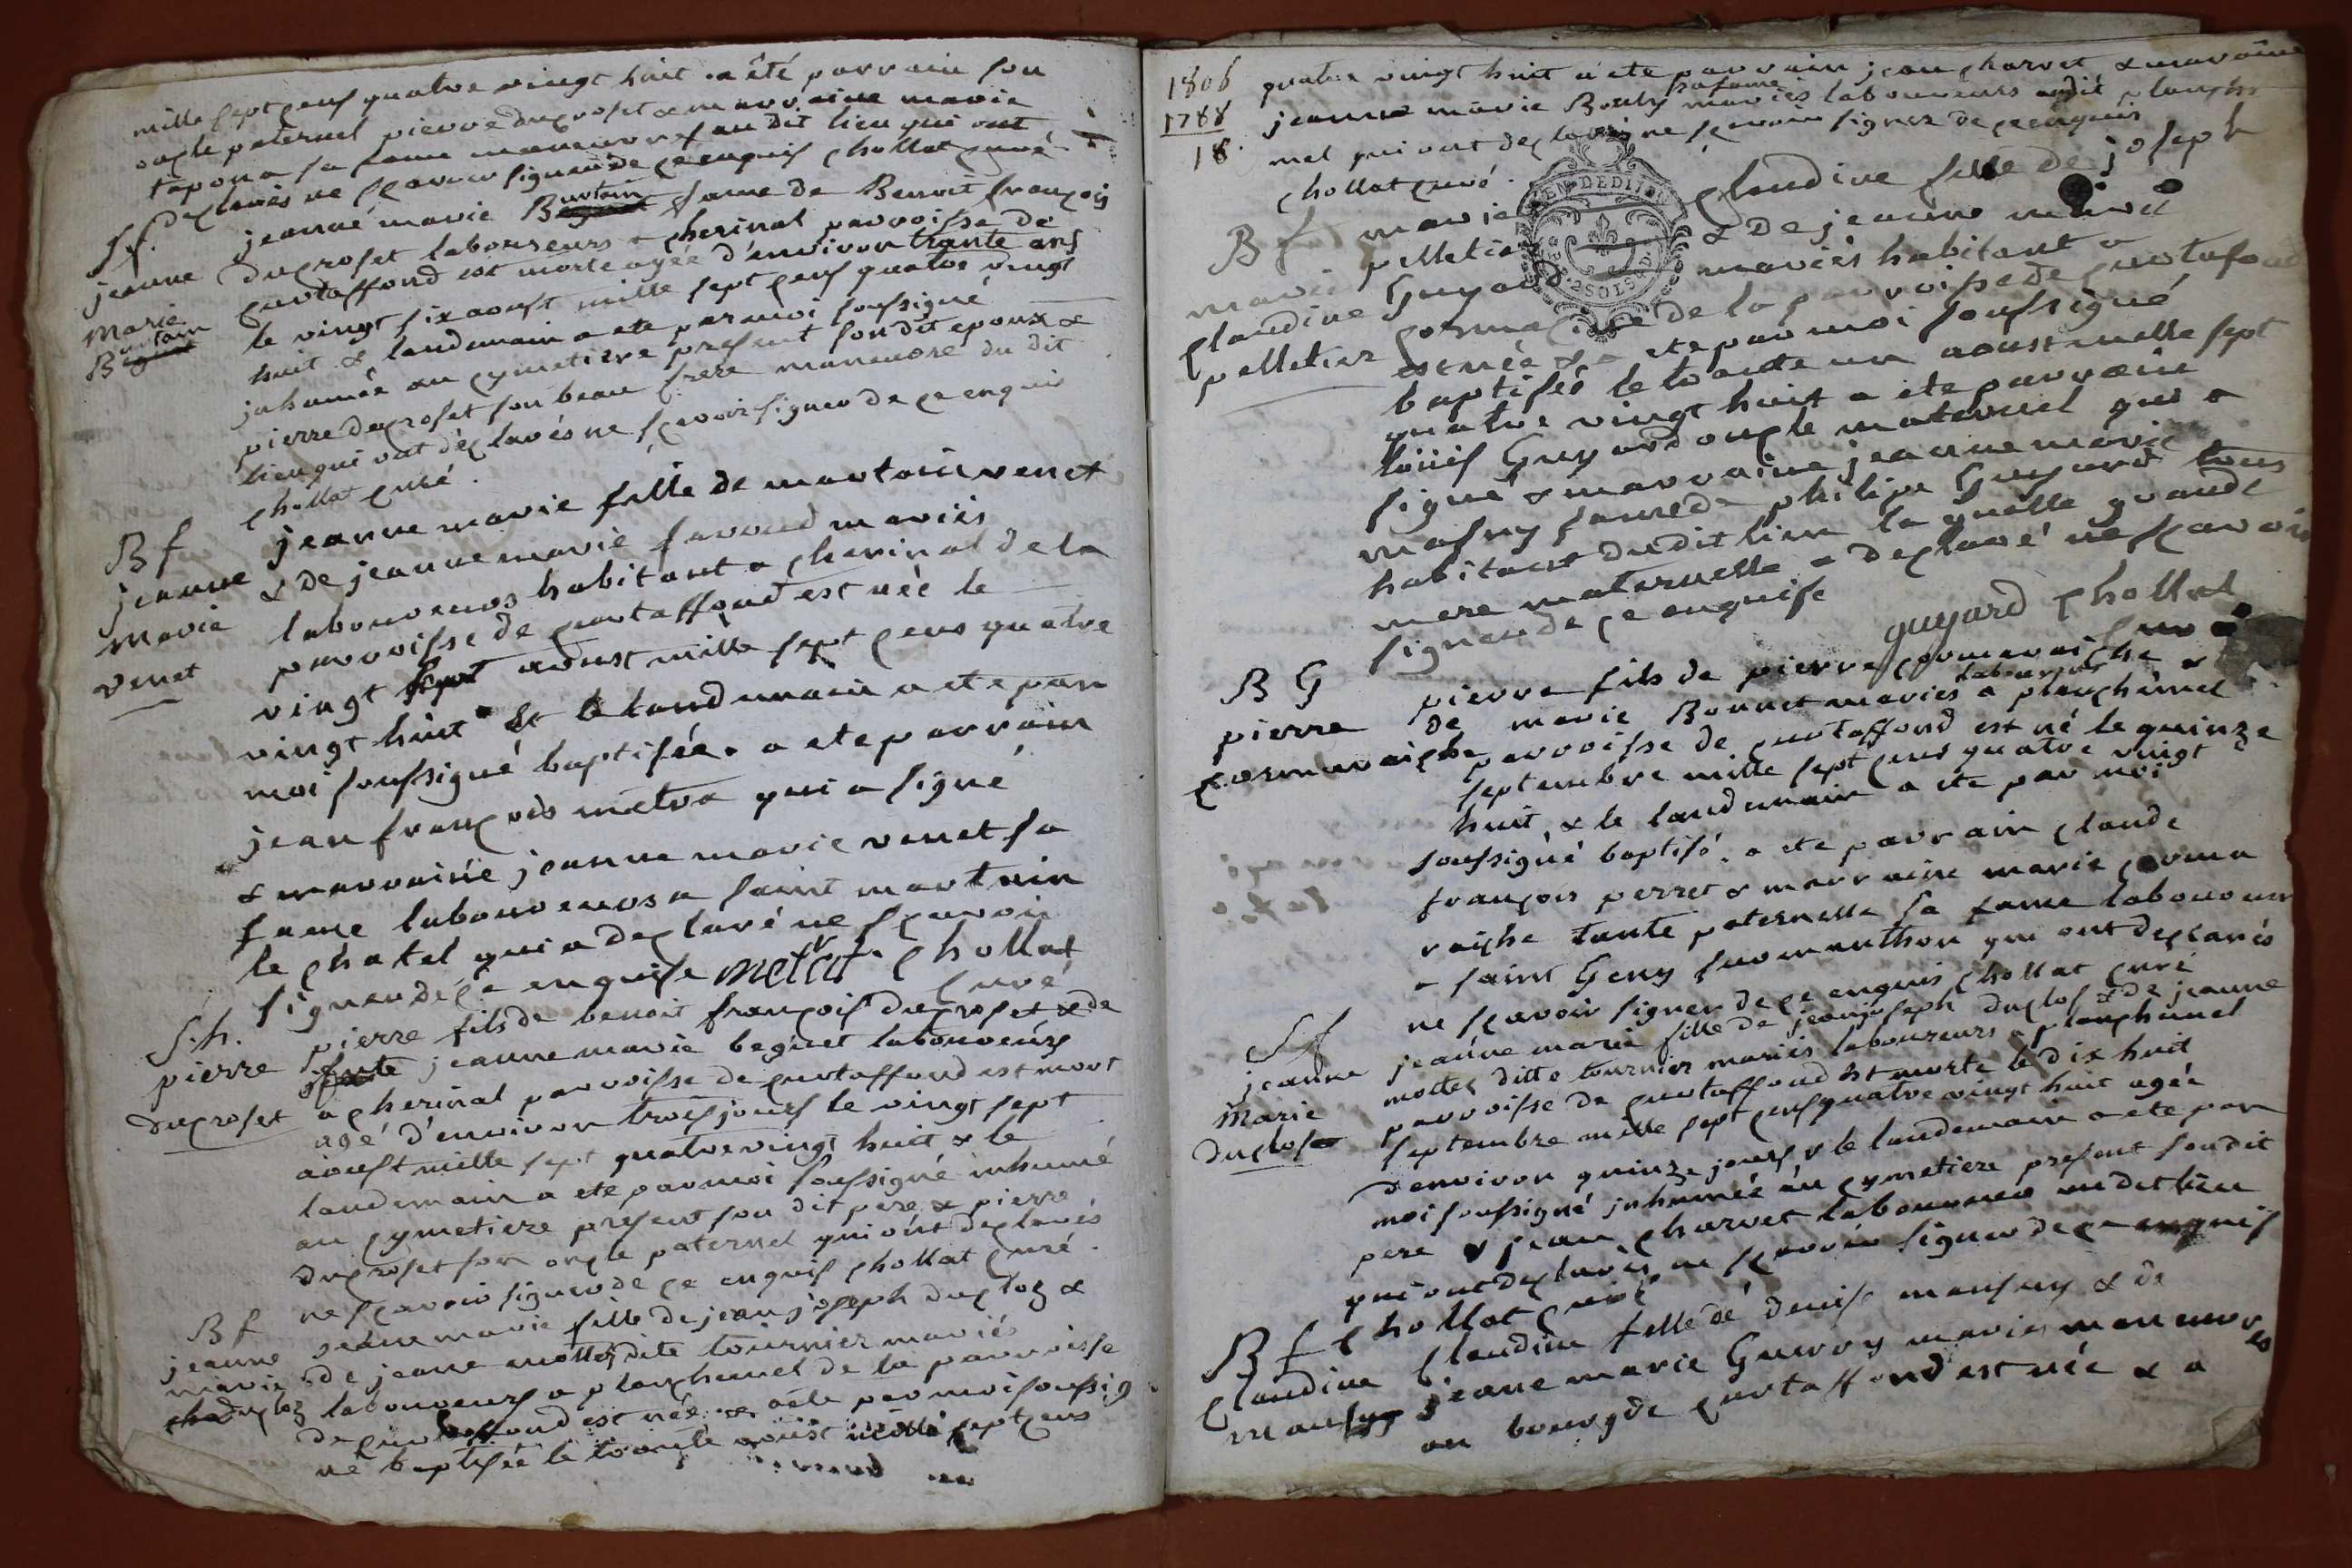 mille sept cens quatre vingt huit. a été parrain son
oncle paternel pierre ducroset & marraine marie
tapon a sa fame maneuvres au dit lieu qui ont
declarés ne sçavoir signer de ce enquis chollat curé
Sf. jeanne marie Burtain fame de Benoit françois
jeanne ducroset laboureurs a cherinal parroisse de
Marie curtaffond est morte agée d'environ trante ans
Burtain le vingt six aoust mille sept cens quatre vingt
huit & landemain a ete par moi soussigné
inhumée au cymetiere present son dit epoux &
pierre ducroset son beau frere maneuvre du dit
lieu qui ont declarés ne sçavoir signer de ce enquis
chollat curé.
Bf jeanne marie fille de martain venet
jeanne & de jeanne marie favoud mariés
Marie laboureurs habitant a cherinal de la
venet parroisse de curtaffond est née le
vingt sept aoust mille sept cens quatre
vingt huit & le landemain a ete par
moi soussigné baptisée. a ete parrain
jean françois metra qui a signé
& marraine jeanne marie venet sa
fame laboureurs a saint martain
le chatel qui a declaré ne sçavoir
signer de ce enquise metra. chollat
curé
S.h. pierre fils de benoit françois ducroset & de
pierre jeanne marie beguet laboureurs
ducroset a cherinal parroisse de curtaffond est mort
agé d'environ trois jours le vingt sept
aoust mille sept quatre vingt huit & le
landemain a ete par moi soussigné inhumé
au cymetiere present son dit pere & pierre
ducroset son oncle paternel qui ont declarés
ne sçavoir signer de ce enquis chollat curé.
Bf jeane marie fille de jean joseph duclos &
jeanne de jeane mottes dite tournier mariés
marie laboureurs a planchemel de la parroisse
duclos de curtaffond est née & a été par moi soussig
né baptisée le trante aoust mille sept cens
1806 quatre vingt huit a ete parrain jean charvet & marraine
1788 jeanne marie Bouly sa fame mariés laboureurs audit planche
18. mel qui ont declarés ne sçavoir signer de ce enquis
chollat curé.
Bf marie claudine fille de joseph
marie pelletier & de jeanne marie
claudine Guyard mariés habitant a
pelletier de la parroisse de curtafond
est née & a ete par moi soussigné
baptisée le trante un aoust mille sept
quatre vingt huit a ete parrain
loüis Guyard oncle maternel qui a
signé & marraine jeanne marie
fame de philipe Guyard tous
habitant du dit lieu la quelle grande
mere maternelle a declaré ne sçavoir
signer de ce enquise
guyard chollat
curé
B G pierre fils de pierre cormaraiche &
pierre de marie Bonnet mariés laboureurs a planchemel
cormaraiche parroisse de curtaffond est né le quinze
septembre mille sept cens quatre vingt
huit, & le landemain a ete par moi
soussigné baptisé. a ete parrain claude
françois perret & marraine marie corma
raiche tante paternelle sa fame laboureurs
a saint Geny sur menthon qui ont declarés
ne sçavoir signer de ce enquis chollat curé
Sf jeanne marie fille de jean joseph duclos & de jeanne
jeanne mottes ditte tournier mariés laboureurs a planchemel
Marie parroisse de curtaffond est morte le dix huit
duclos septembre mille sept cens quatre vingt huit agée
d'environ quinze jours & le landemain a ete par
moi soussigné inhumée au cymetiere present son dit
pere & jean charvet laboureur au dit lieu
qui ont declarés ne sçavoir signer de ce enquis
chollat curé
Bf claudine fille de denis mansuy & de
claudine jeane marie Guerry mariés maneuvres
mansuy au bourg de curtaffond est née & a